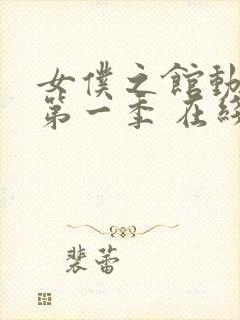 女僕之館動
第一季 在線
裴蕾